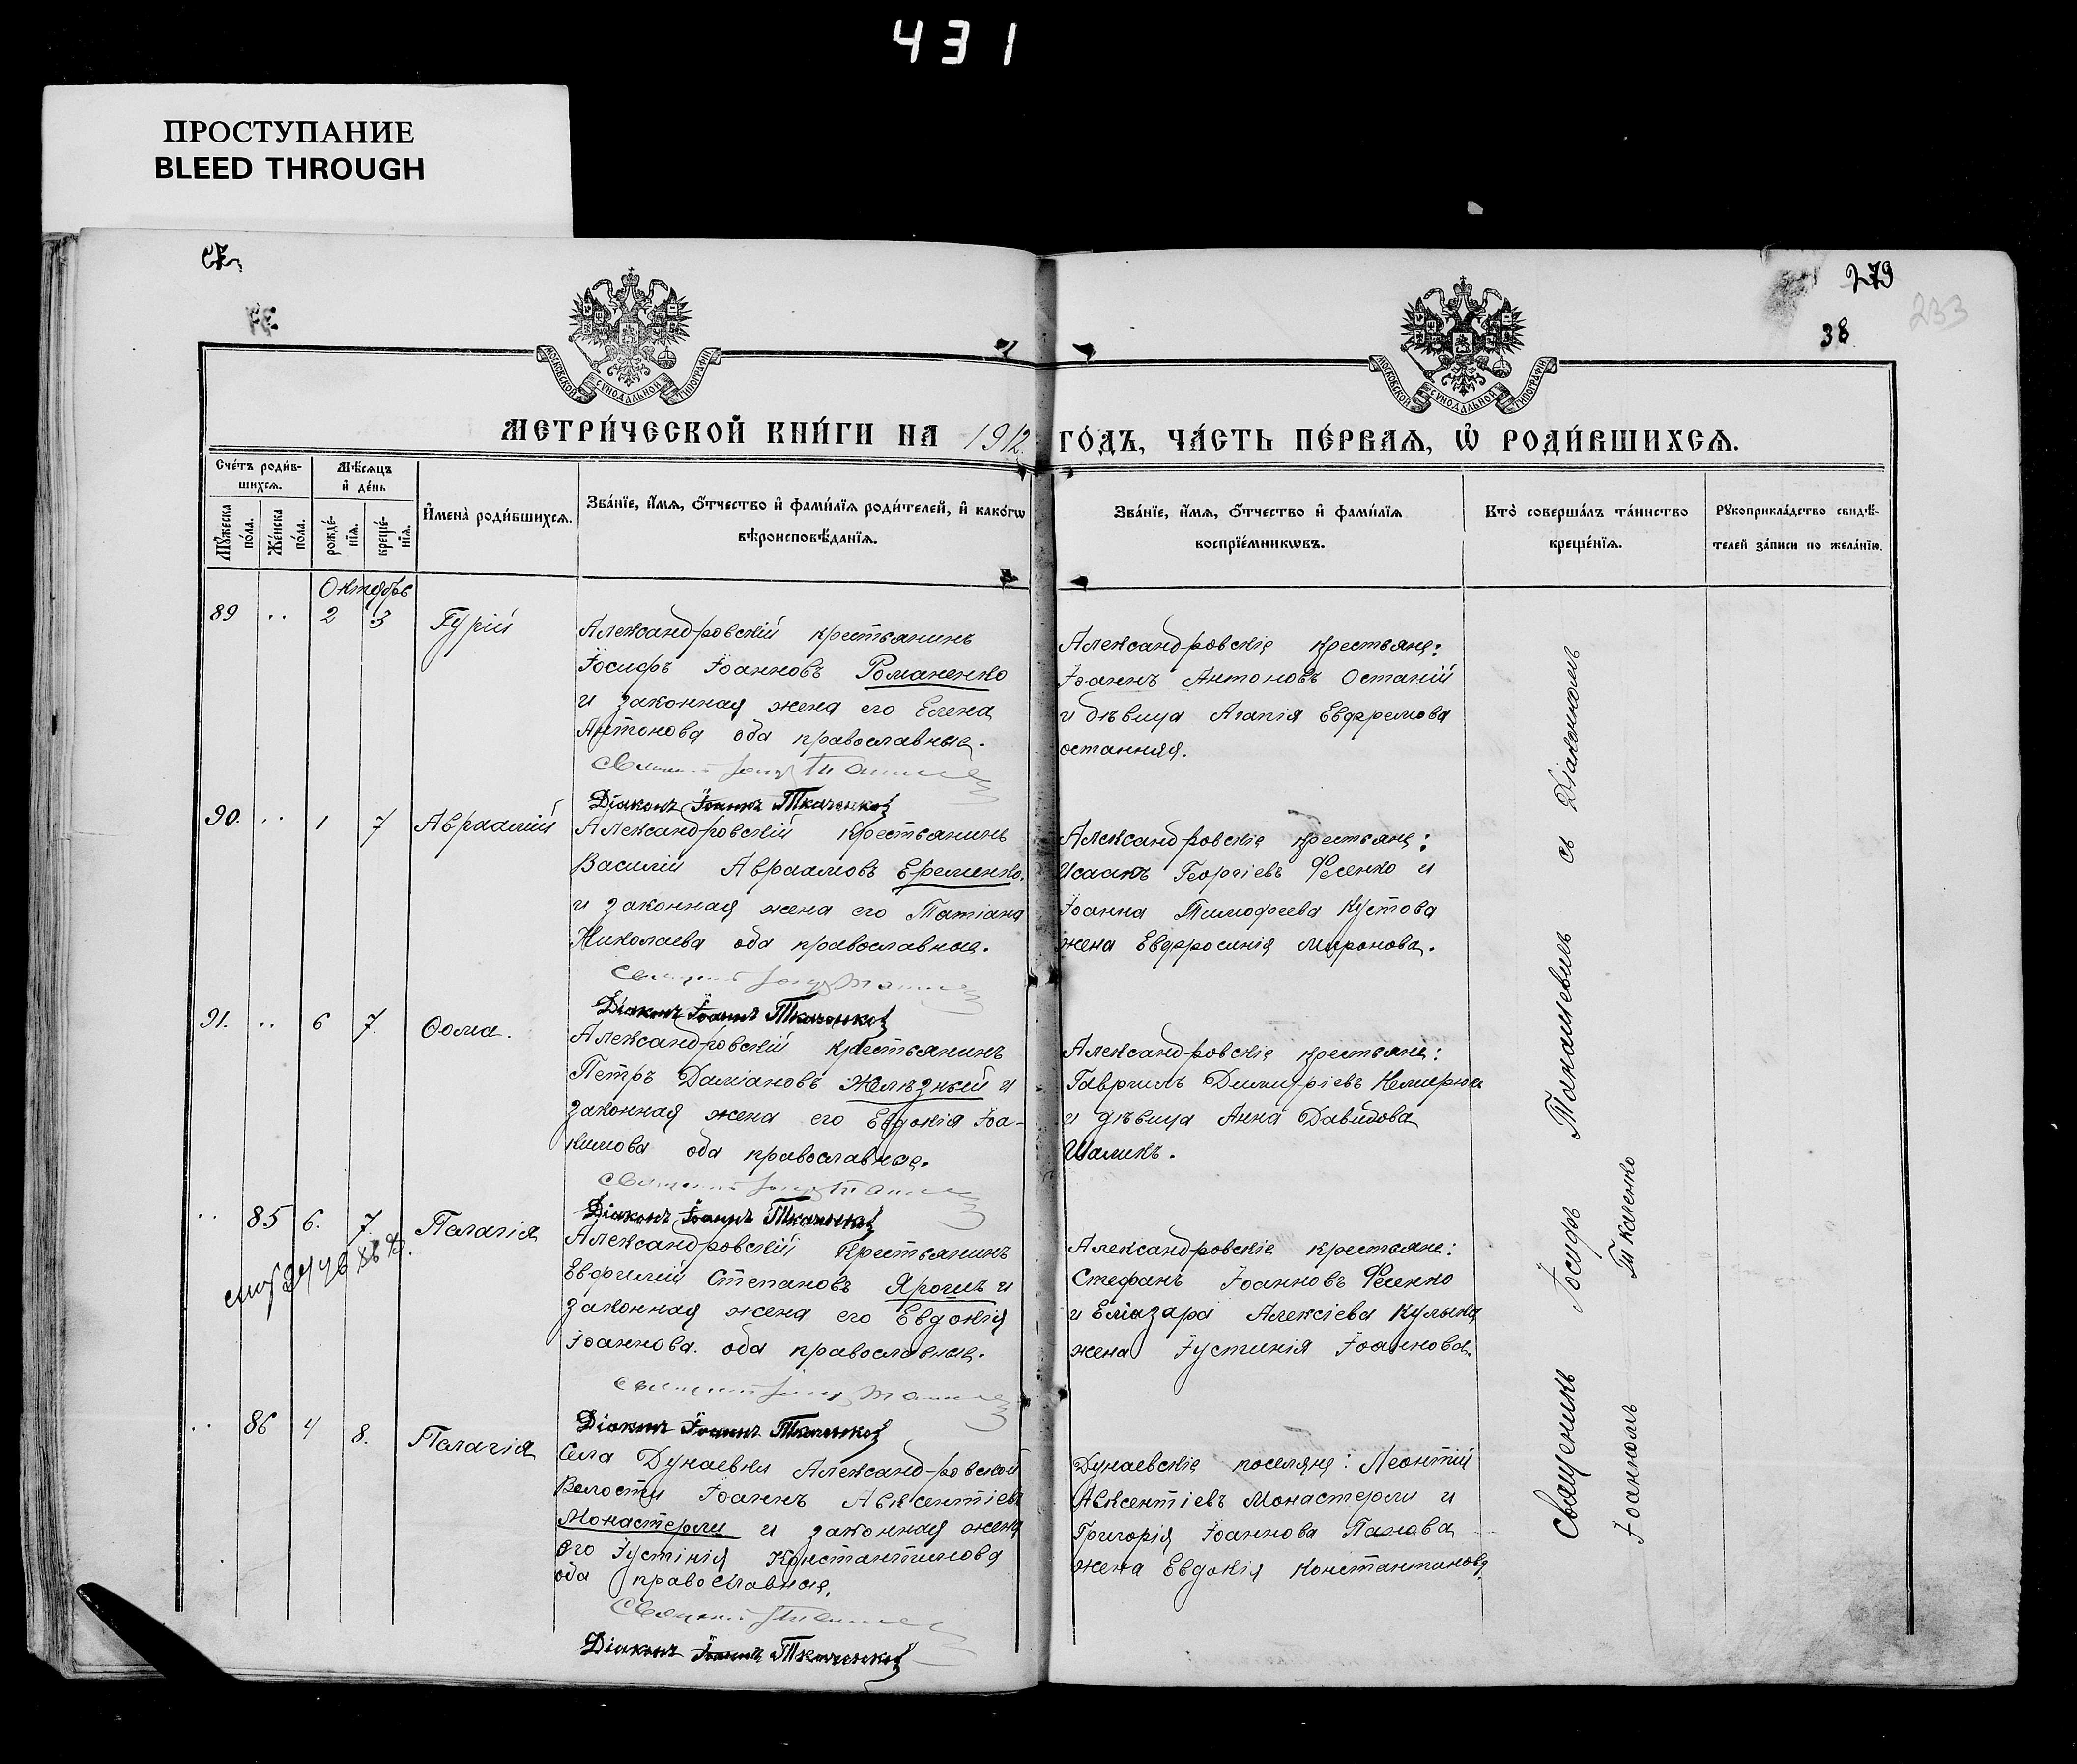 431
ПРОСТУПАНИЕ
BLEED THROUGH
279
38
233
МОСКОВСКОЙ СУНОДАЛЬНОЙ ТИПОГРАФІИ
МОСКОВСКОЙ СУНОДАЛЬНОЙ ТИПОГРАФІИ
МЕТРИ́ЧЕСКОЙ КНИ́ГИ НА 1912 ГО́ДЪ, ЧА́СТЬ ПЕ́РВАѦ, Ѡ҆ РОДИ́ВШИХСѦ.
Сче́тъ роди́в-
шихсѧ.
Мꙋ́жеска по́ла.
Же́нска по́ла.
Мѣ́сѧцъ
и҆ де́нь
рожде́-
нїѧ.
креще́-
нїѧ.
И҆мена̀ роди́вшихсѧ.
Зва́нїе, и҆́мѧ, ѻ҆́тчество и҆ фами́лїѧ роди́телей, и҆ како́гѡ
вѣроисповѣ́данїѧ.
Зва́нїе, и҆́мѧ, ѻ҆́тчество и҆ фами́лїѧ
воспрїе́мникѡвъ.
Кто̀ соверша́лъ та́инство
креще́нїѧ.
Рꙋкоприкла́дство свидѣ́-
телей за́писи по жела́нїю.
Октябрь
89 .. 2 3 Гурій
Александровскій крестьянинъ
Іосифъ Іоанновъ Романенко
и законная жена его Елена
Антонова оба православные.
Діаконъ Іоаннъ Ткаченко
Александровскіе крестьяне:
Іоаннъ Антоновъ Останій
и дѣвица Агапія Евфремова
Останняя.
90. .. 1 7 Авраамій
Александровскій крестьянинъ
Василій Авраамовъ Еременко
и законная жена его Татіана
Николаева оба православные.
Діаконъ Іоаннъ Ткаченко
Александровскіе крестьяне:
Исаакъ Георгіевъ Фесенко и
Іоанна Тимофеева Кустова
жена Евфросинія Миронова.
91. .. 6 7. Ѳома.
Александровскій крестьянинъ
Петръ Даміановъ Желѣзный и
законная жена его Евдокія Іоа-
кимова оба православные.
Діаконъ Іоаннъ Ткаченко
Александровскіе крестьяне:
Гавриилъ Димитріевъ
и дѣвица Анна Давидова
Шаликъ.
.. 85 6. 7. Пелагія
Александровскій крестьянинъ
Евфимій Степановъ Ярошъ и
законная жена его Евдокія
Іоаннова оба православные.
Діаконъ Іоаннъ Ткаченко
Александровскіе крестьяне:
Стефанъ Іоанновъ Фесенко
и Еліазара Алексіева Кулыка
жена Іустинія Іоаннова.
.. 86 4 8. Пелагія
Села Дунаевки Александровской
Волости Іоаннъ Авксентіевъ
Монастерли и законная жена
его Іустинія Константинова
оба православные.
Діаконъ Іоаннъ Ткаченко
Дунаевскіе поселяне: Леонтій
Авксентіевъ Монастерли и
Григорія Іоаннова Панова
жена Евдокія Константинова
Священникъ Іосифъ съ Діакономъ
Іоанномъ Ткаченко